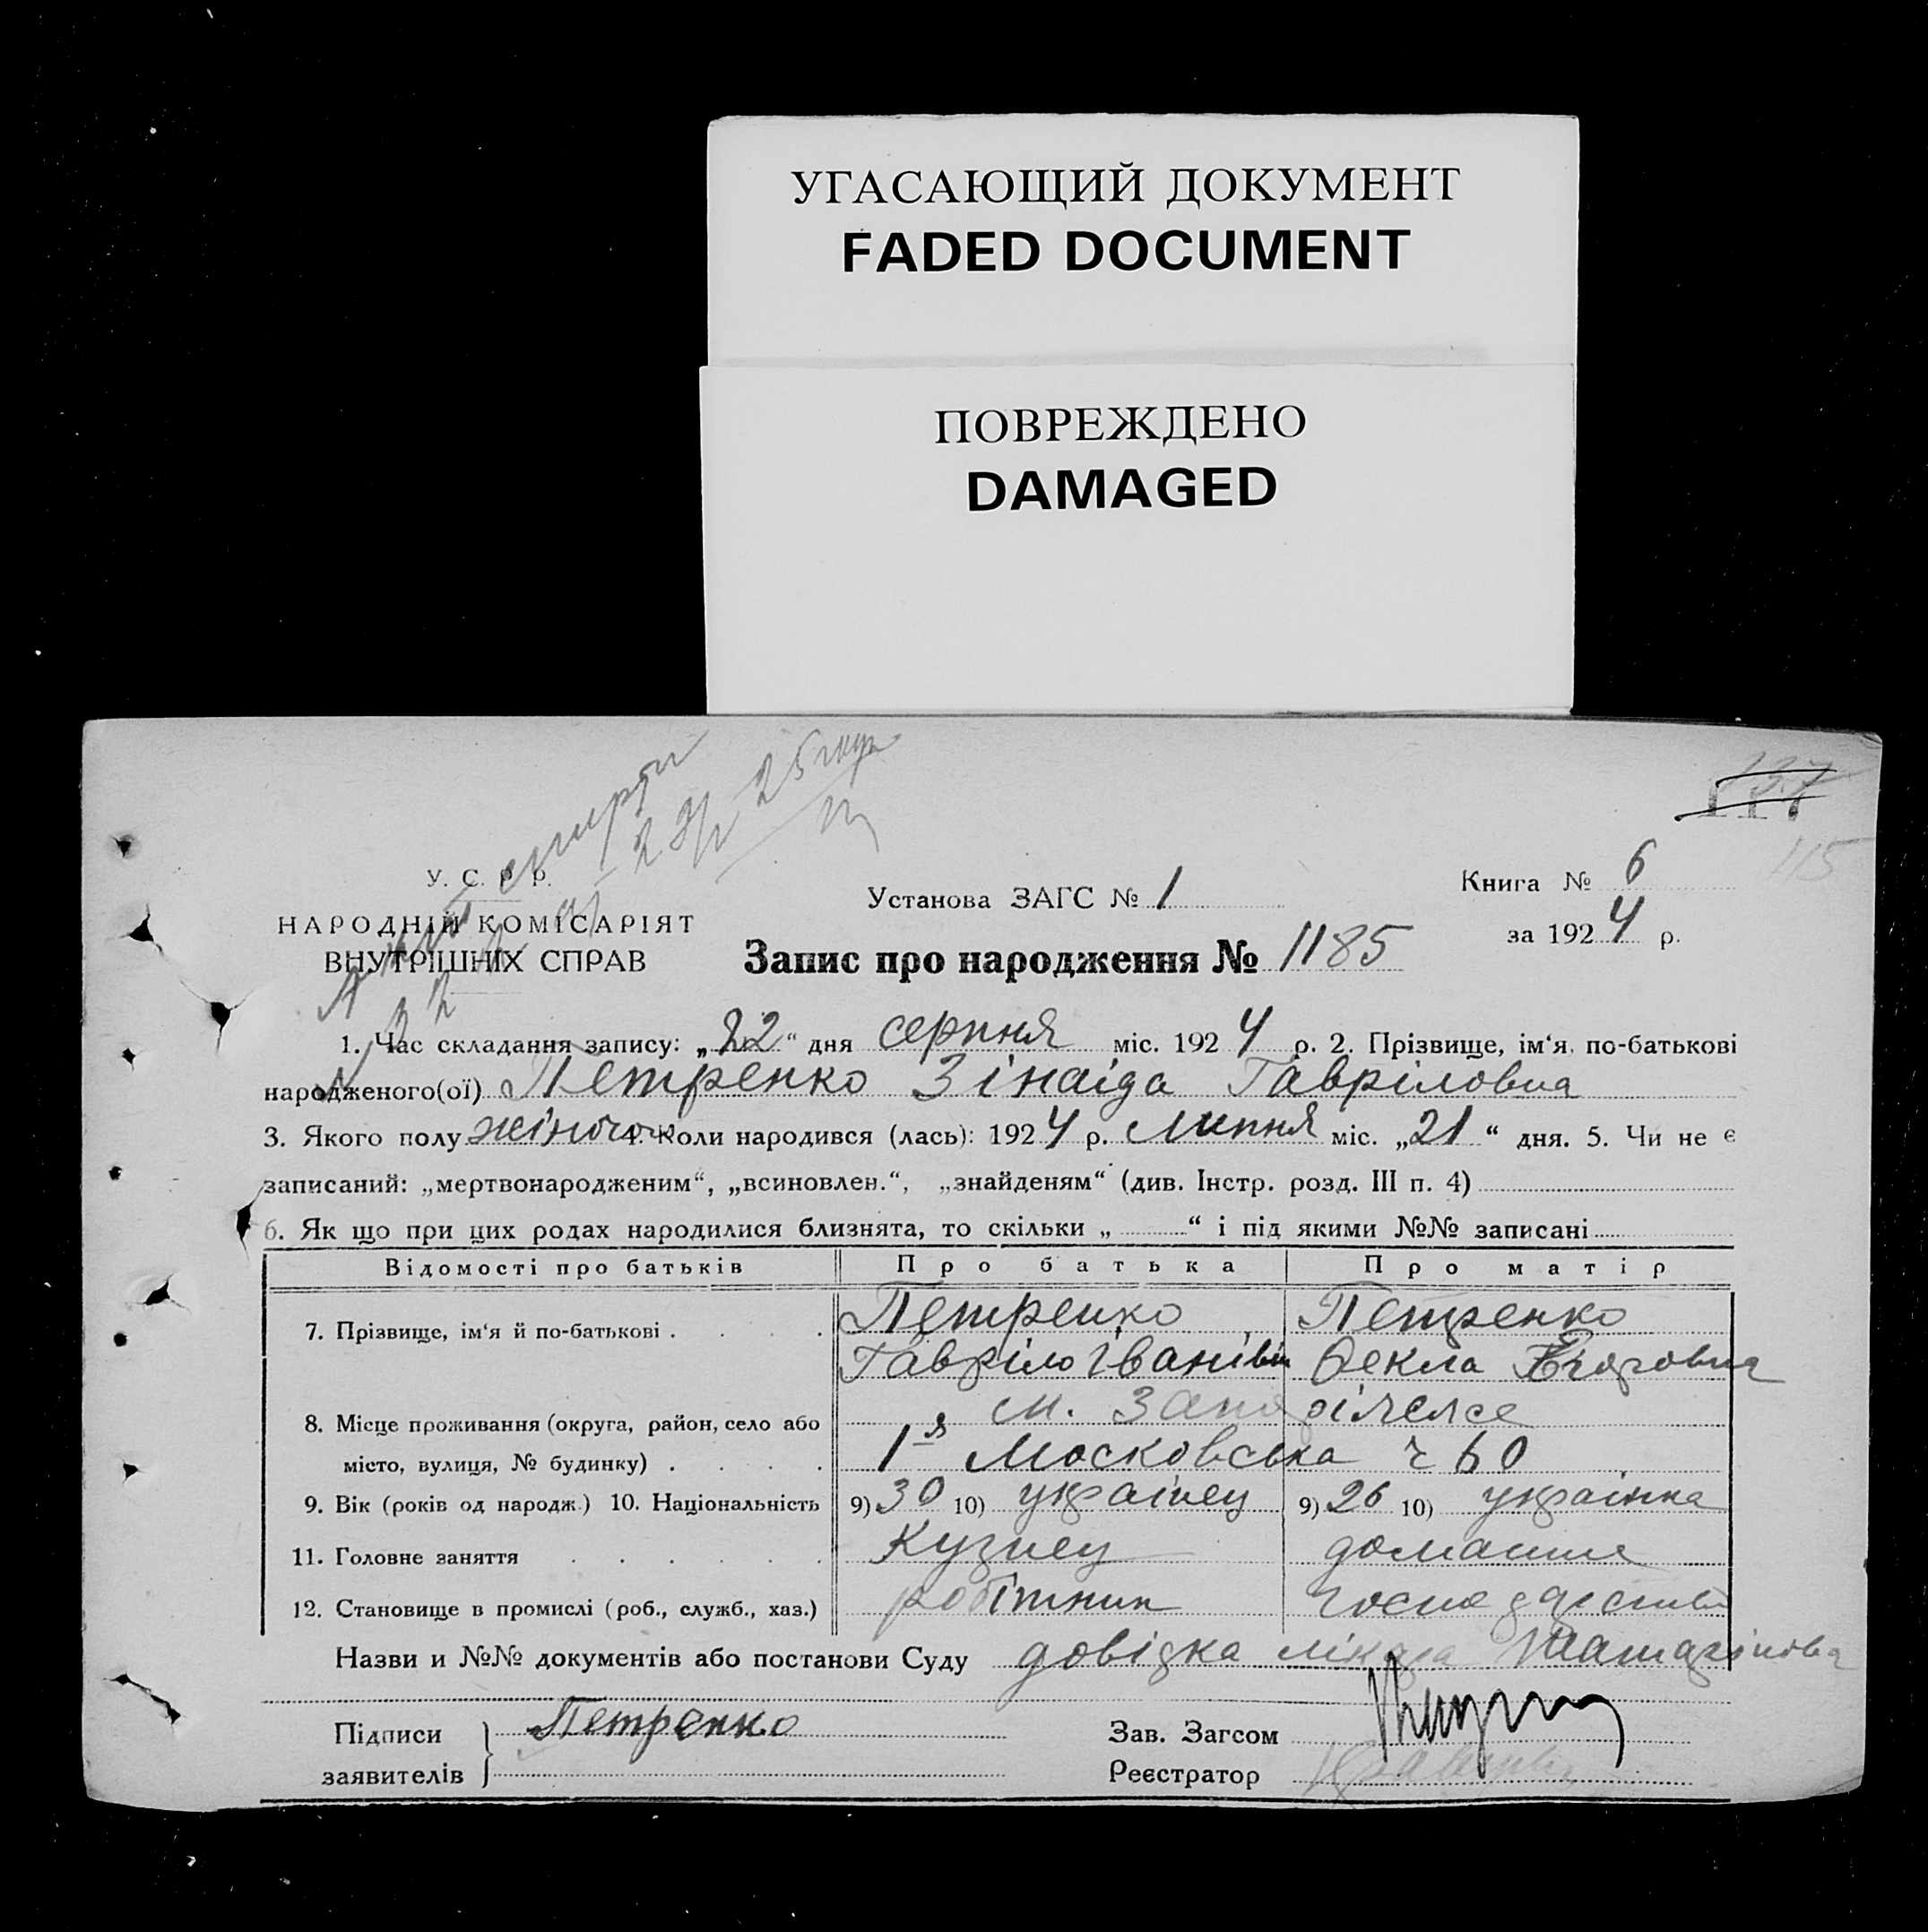 УГАСАЮЩИЙ ДОКУМЕНТ
FADED DOCUMENT
ПОВРЕЖДЕНО
DAMAGED
смерти
25 года
137
115
У. С. Р. Р.
НАРОДНІЙ КОМІСАРІЯТ
ВНУТРІШНІХ СПРАВ
Установа ЗАГС № 1
Книга № 6
за 1924 р.
Запис про народження № 1185
1. Час складання запису: „22“ дня серпня міс. 1924 р. 2. Прізвище, ім‘я, по-батькові
народженого(ої) Петренко Зінаіда Гавріловна
3. Якого полу жіночо 4. Коли народився (лась): 1924 р. липня міс. „21“ дня. 5. Чи не є
записаний: „мертвонародженим“, „всиновлен.“, „знайденям“ (див. Інстр. розд. III п. 4)
6. Як що при цих родах народилися близнята, то скільки „ “ і під якими №№ записані
Відомості про батьків Про батька Про матір
7. Прізвище, ім‘я й по-батькові . . . . Петренко Петренко
Гавріло Іванівіч Фекла Егоровна
8. Місце проживання (округа, район, село або м. Запоріжжє
місто, вулиця, № будинку) . . . . 1я Московська ч 60
9. Вік (років од народж.) 10. Національність 9) 30 10) українец 9) 26 10) українка
11. Головне заняття . . . . . . Кузнец домашне
12. Становище в промислі (роб., служб., хаз.) робітник госпо
Назви и №№ документів або постанови Суду довідка лікаря
Підписи Петренко Зав. Загсом
заявителів Реєстратор